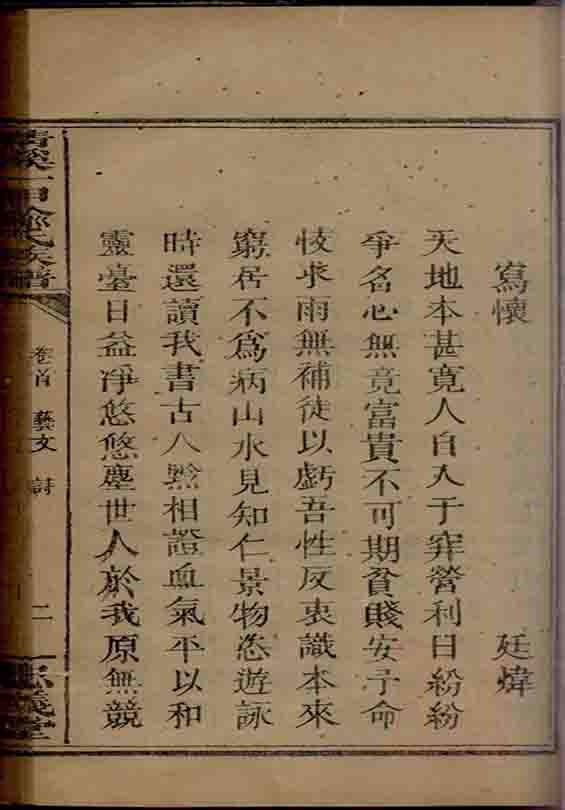 寫懷 廷煒
天地本甚寬人自入于穽營利日紛紛
爭名心無竟富貴不可期貧賤安予命
忮求兩無補徒以虧吾性反衷識本來
窮居不為病山水見知仁景物恣遊詠
時還讀我書古人黙相證血氣平以和
靈臺日益凈悠悠塵世人於我原無競
氏族譜
卷首 藝文 詩
二
義堂